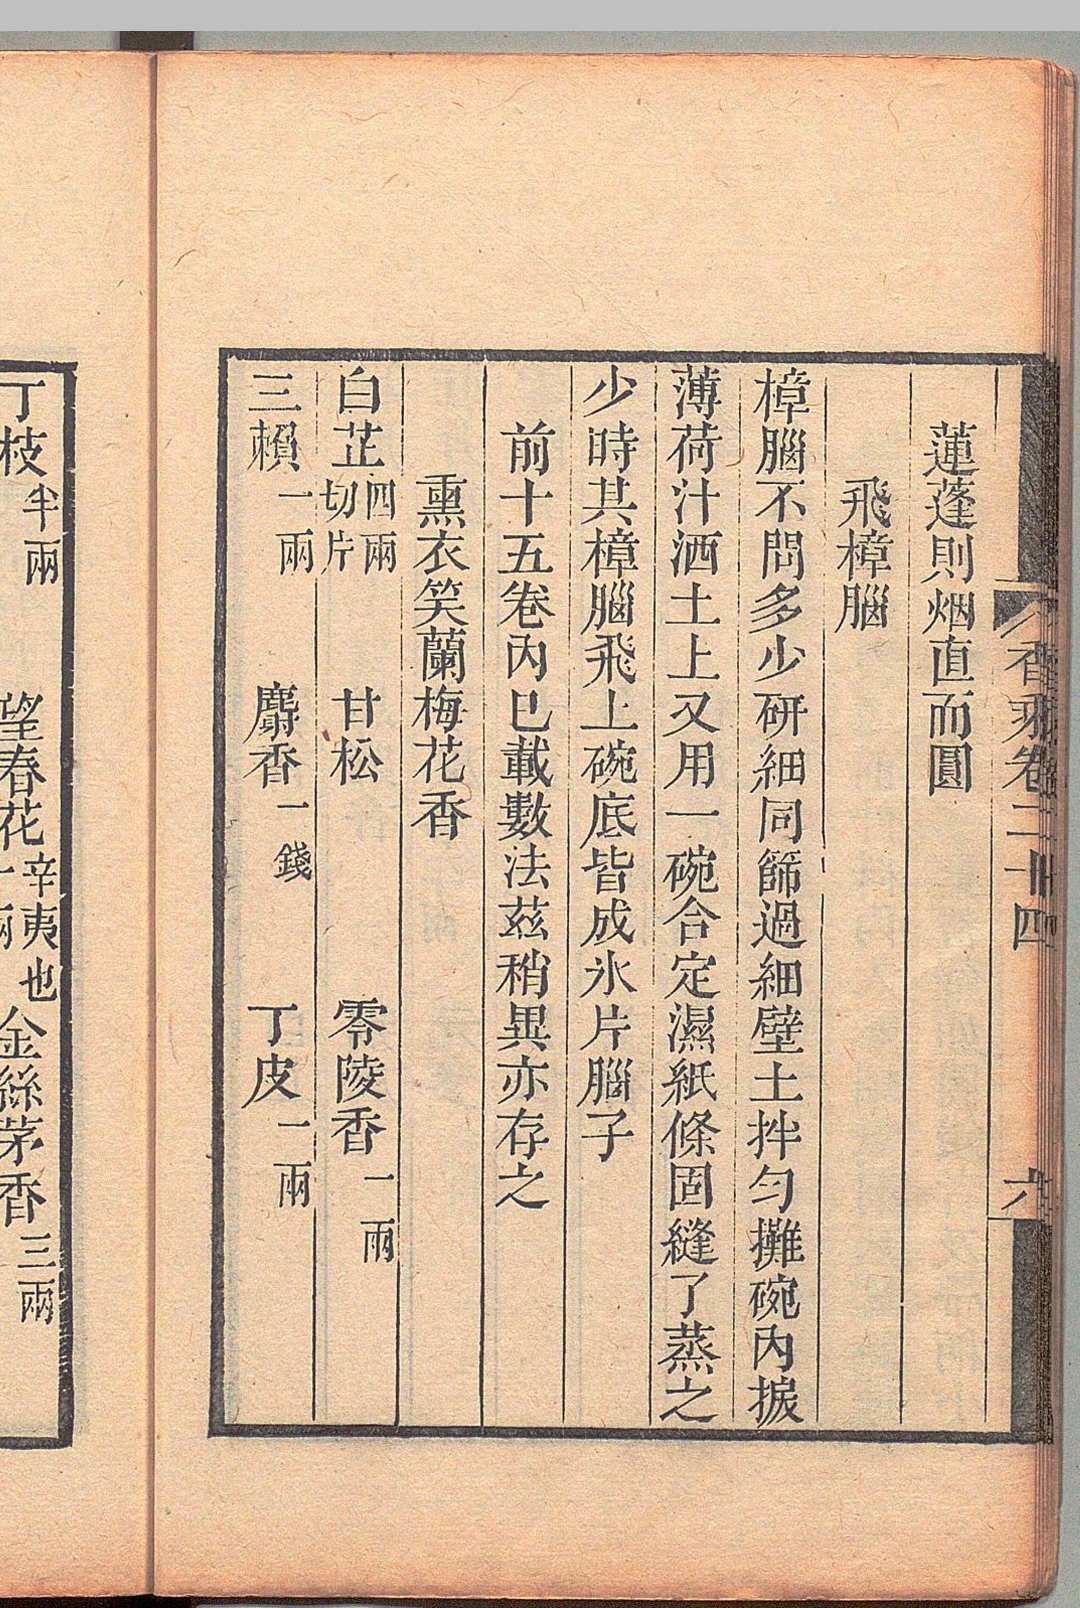 香乘卷二十四
六
蓮蓬則烟直而圓
飛樟腦
樟腦不問多少研細同篩過細壁土拌勻攤碗內捩
薄荷汁洒土上又用一碗合定濕紙條固縫了蒸之
少時其樟腦飛上碗底皆成氷片腦子
前十五卷內巳載數法茲稍異亦存之
熏衣笑蘭梅花香
白芷四兩切片 甘松 零陵香一兩
三賴一兩 麝香一錢 丁皮一兩
丁枝半兩 望春花辛夷也一兩 金絲茅香三兩